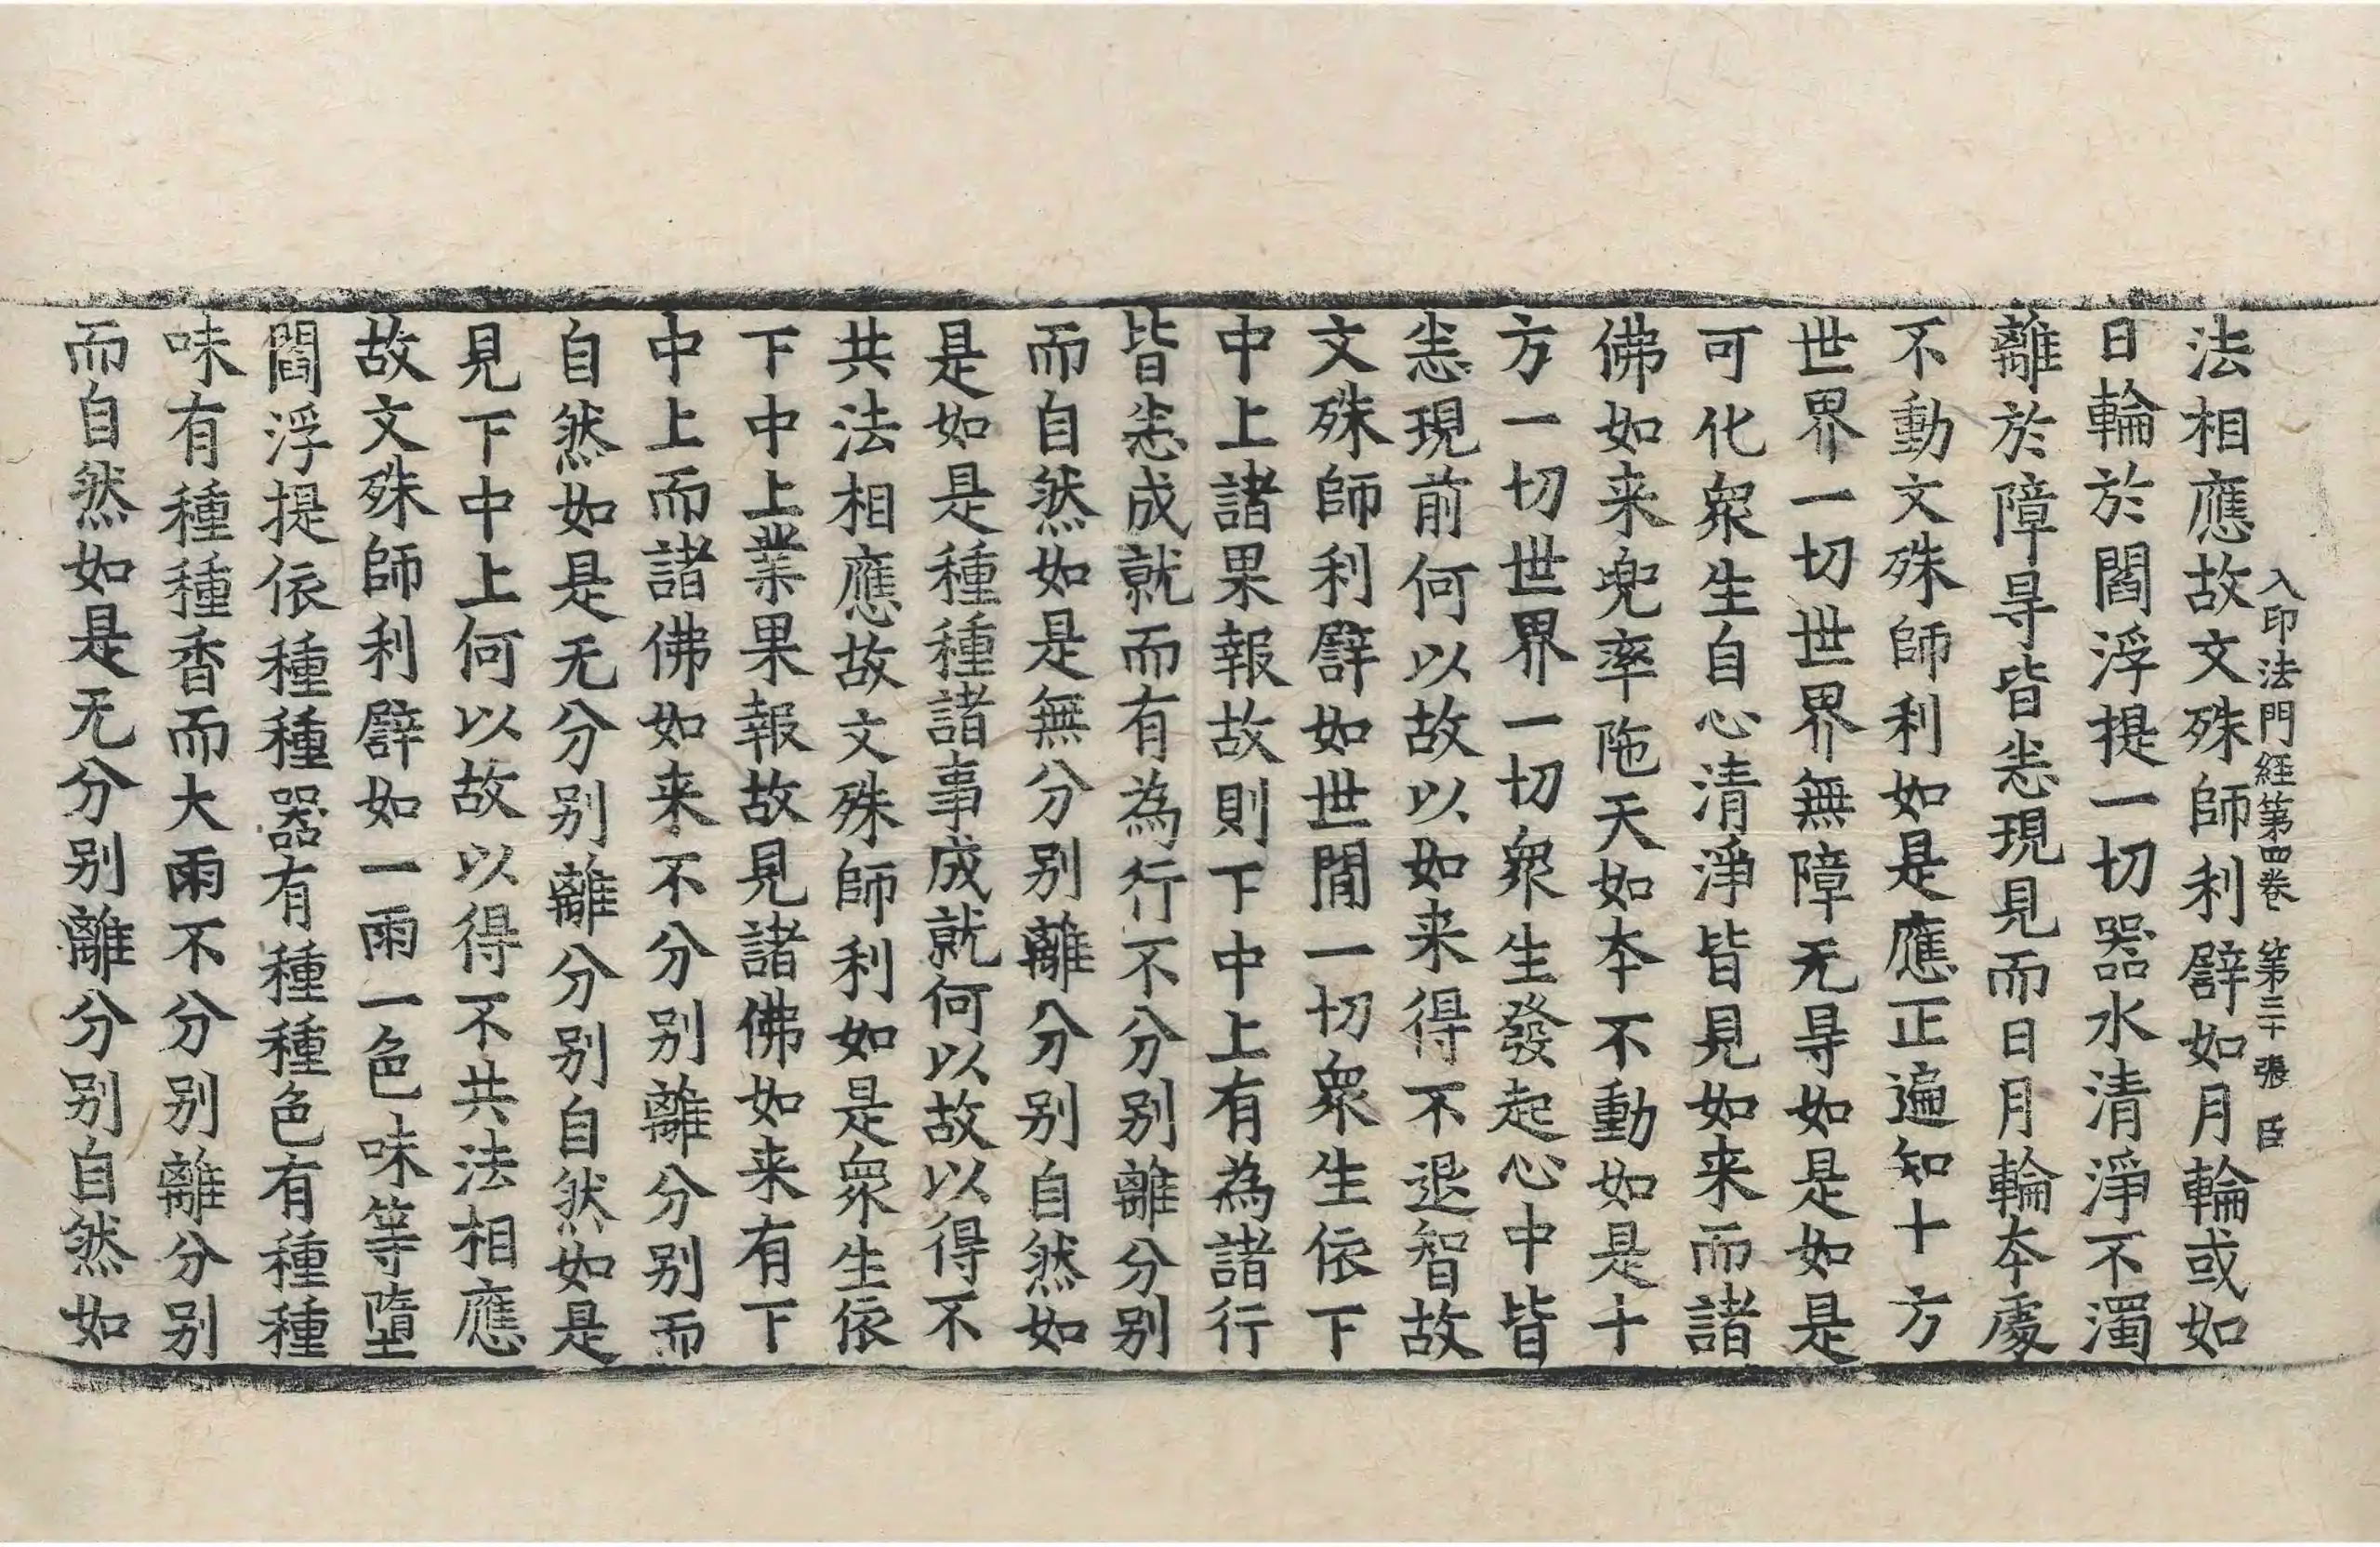 入印法門経第四卷 第三十張 臣
法相應故文殊師利譬如月輪或如
日輪於閻浮提一切器水清淨不濁
離於障㝵皆悉現見而日月輪本處
不動文殊師利如是應正遍知十方
世界一切世界無障无㝵如是如是
可化衆生自心清淨皆見如来而諸
佛如来兜率陁天如本不動如是十
方一切世界一切衆生發起心中皆
悉現前何以故以如来得不退智故
文殊師利譬如世間一切衆生依下
中上諸果報故則下中上有為諸行
皆悉成就而有為行不分别離分别
而自然如是無分别離分别自然如
是如是種種諸事成就何以故以得不
共法相應故文殊師利如是衆生依
下中上業果報故見諸佛如来有下
中上而諸佛如来不分别離分别而
自然如是无分别離分别自然如是
見下中上何以故以得不共法相應
故文殊師利譬如一雨一色味等墮
閻浮提依種種器有種種色有種種
味有種種香而大雨不分别離分别
而自然如是无分别離分别自然如